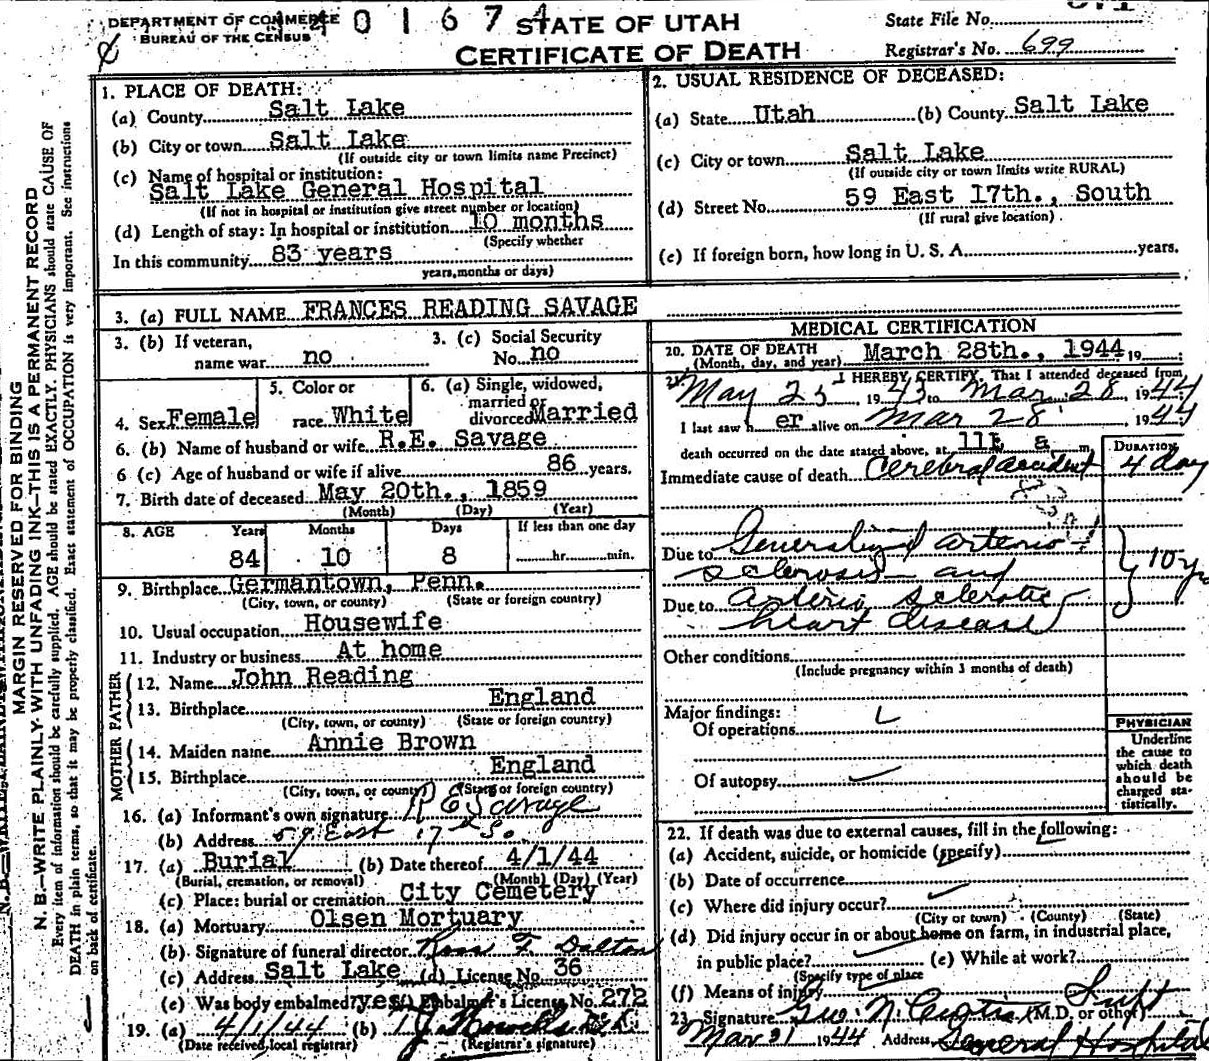 DEPARTMENT OF COMMERCE
BUREAU OF THE CENSUS
4 0 1 6 7 4
STATE OF UTAH
CERTIFICATE OF DEATH
State File No.
Registrar's No. 699
MARGIN RESERVED FOR BINDING
N. B.—WRITE PLAINLY WITH UNFADING INK—THIS IS A PERMANENT RECORD
Every item of information should be carefully supplied. AGE should be stated EXACTLY. PHYSICIANS should state CAUSE OF
DEATH in plain terms, so that it may be properly classified. Exact statement of OCCUPATION is very important. See instructions
on back of certificate.
1. PLACE OF DEATH:
(a) County Salt Lake
(b) City or town Salt Lake
(If outside city or town limits name Precinct)
(c) Name of hospital or institution:
Salt Lake General Hospital
(If not in hospital or institution give street number or location)
(d) Length of stay: In hospital or institution 10 months
(Specify whether
In this community 83 years
years, months or days)
2. USUAL RESIDENCE OF DECEASED:
(a) State Utah (b) County Salt Lake
(c) City or town Salt Lake
(If outside city or town limits write RURAL)
(d) Street No. 59 East 17th., South
(If rural give location)
(e) If foreign born, how long in U. S. A. years.
3. (a) FULL NAME FRANCES READING SAVAGE
3. (b) If veteran,
name war no
3. (c) Social Security
No. no
4. Sex Female
5. Color or
race White
6. (a) Single, widowed,
married or
divorced Married
6. (b) Name of husband or wife R.E. Savage
6 (c) Age of husband or wife if alive 86 years.
7. Birth date of deceased May 20th., 1859
(Month) (Day) (Year)
8. AGE Years Months Days If less than one day
84 10 8 hr. min.
9. Birthplace Germantown, Penn.
(City, town, or county) (State or foreign country)
10. Usual occupation Housewife
11. Industry or business At home
FATHER
12. Name John Reading
13. Birthplace England
(City, town, or county) (State or foreign country)
MOTHER
14. Maiden name Annie Brown
15. Birthplace England
(City, town, or county) (State or foreign country)
16. (a) Informant's own signature R E Savage
(b) Address 59 East 17th So
17. (a) Burial (b) Date thereof 4/1/44
(Burial, cremation, or removal) (Month) (Day) (Year)
(c) Place: burial or cremation City Cemetery
18. (a) Mortuary Olsen Mortuary
(b) Signature of funeral director Ross F. Dalton
(c) Address Salt Lake (d) License No. 36
(e) Was body embalmed? yes (f) Embalmer's License No. 272
19. (a) 4/1/44 (b)
(Date received local registrar) (Registrar's signature)
MEDICAL CERTIFICATION
20. DATE OF DEATH March 28th., 1944 19
(Month, day, and year)
21. I HEREBY CERTIFY, That I attended deceased from
May 25 1943 to Mar 28, 1944
I last saw h er alive on Mar 28, 1944
death occurred on the date stated above, at a m.
DURATION
Immediate cause of death Cerebral accident 4 day
Due to Generalized arterio
sclerosis and 10 yr
Due to arterio sclerotic
heart disease
Other conditions
(Include pregnancy within 3 months of death)
Major findings:
Of operations
Of autopsy
PHYSICIAN
Underline
the cause to
which death
should be
charged sta-
tistically.
22. If death was due to external causes, fill in the following:
(a) Accident, suicide, or homicide (specify)
(b) Date of occurrence
(c) Where did injury occur?
(City or town) (County) (State)
(d) Did injury occur in or about home on farm, in industrial place,
in public place? (e) While at work?
(Specify type of place
(f) Means of injury
Supt
23. Signature Geo. N. Curtis (M.D. or other)
Mar 31 1944 Address General Hospital